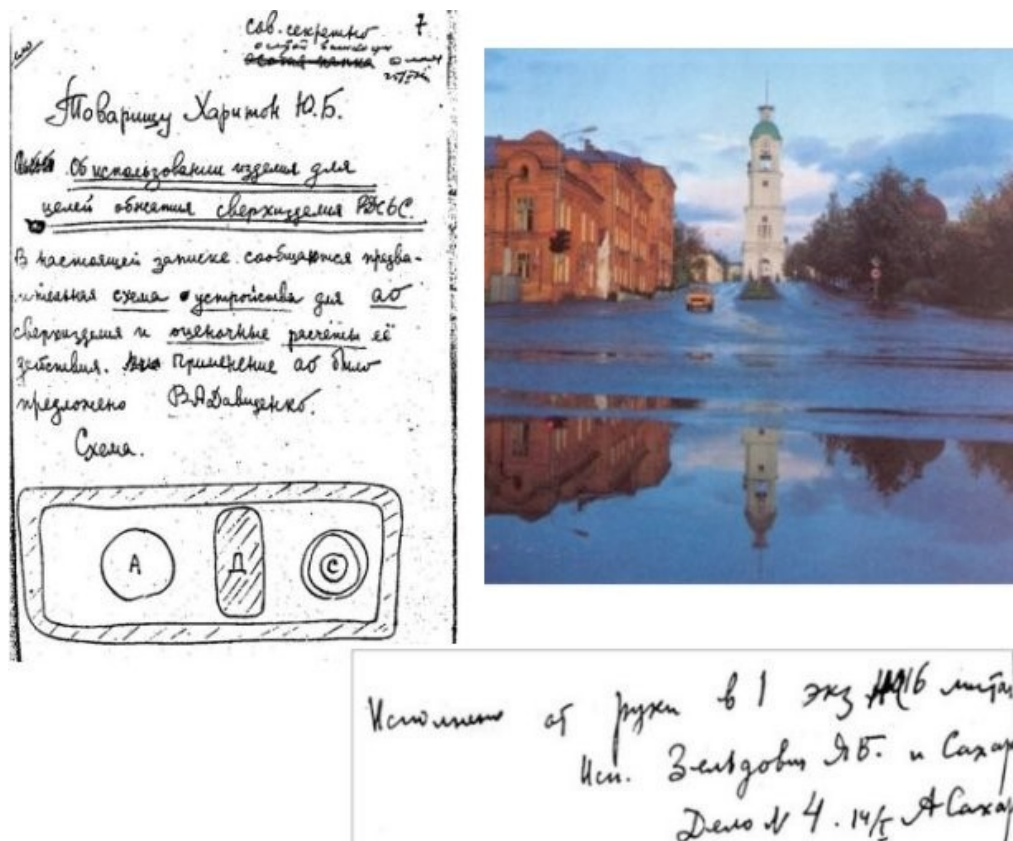 Сов. секретно 7
особой важности
особая папка
Товарищу Харитон Ю.Б.
Об использовании изделия для
целей обжатия сверхизделия РДС6С.
В настоящей записке сообщаются предва-
ительная схема устройства для ао
сверхизделия и оценочные расчёты её
действия. Применение ао было
предложено В.А.Давиденко.
Схема.
А Д С
Исполнено от руки в 1 экз на 16 листах
Исп. Зельдович Я.Б. и Сахар
Дело N 4. 14/I АСахар